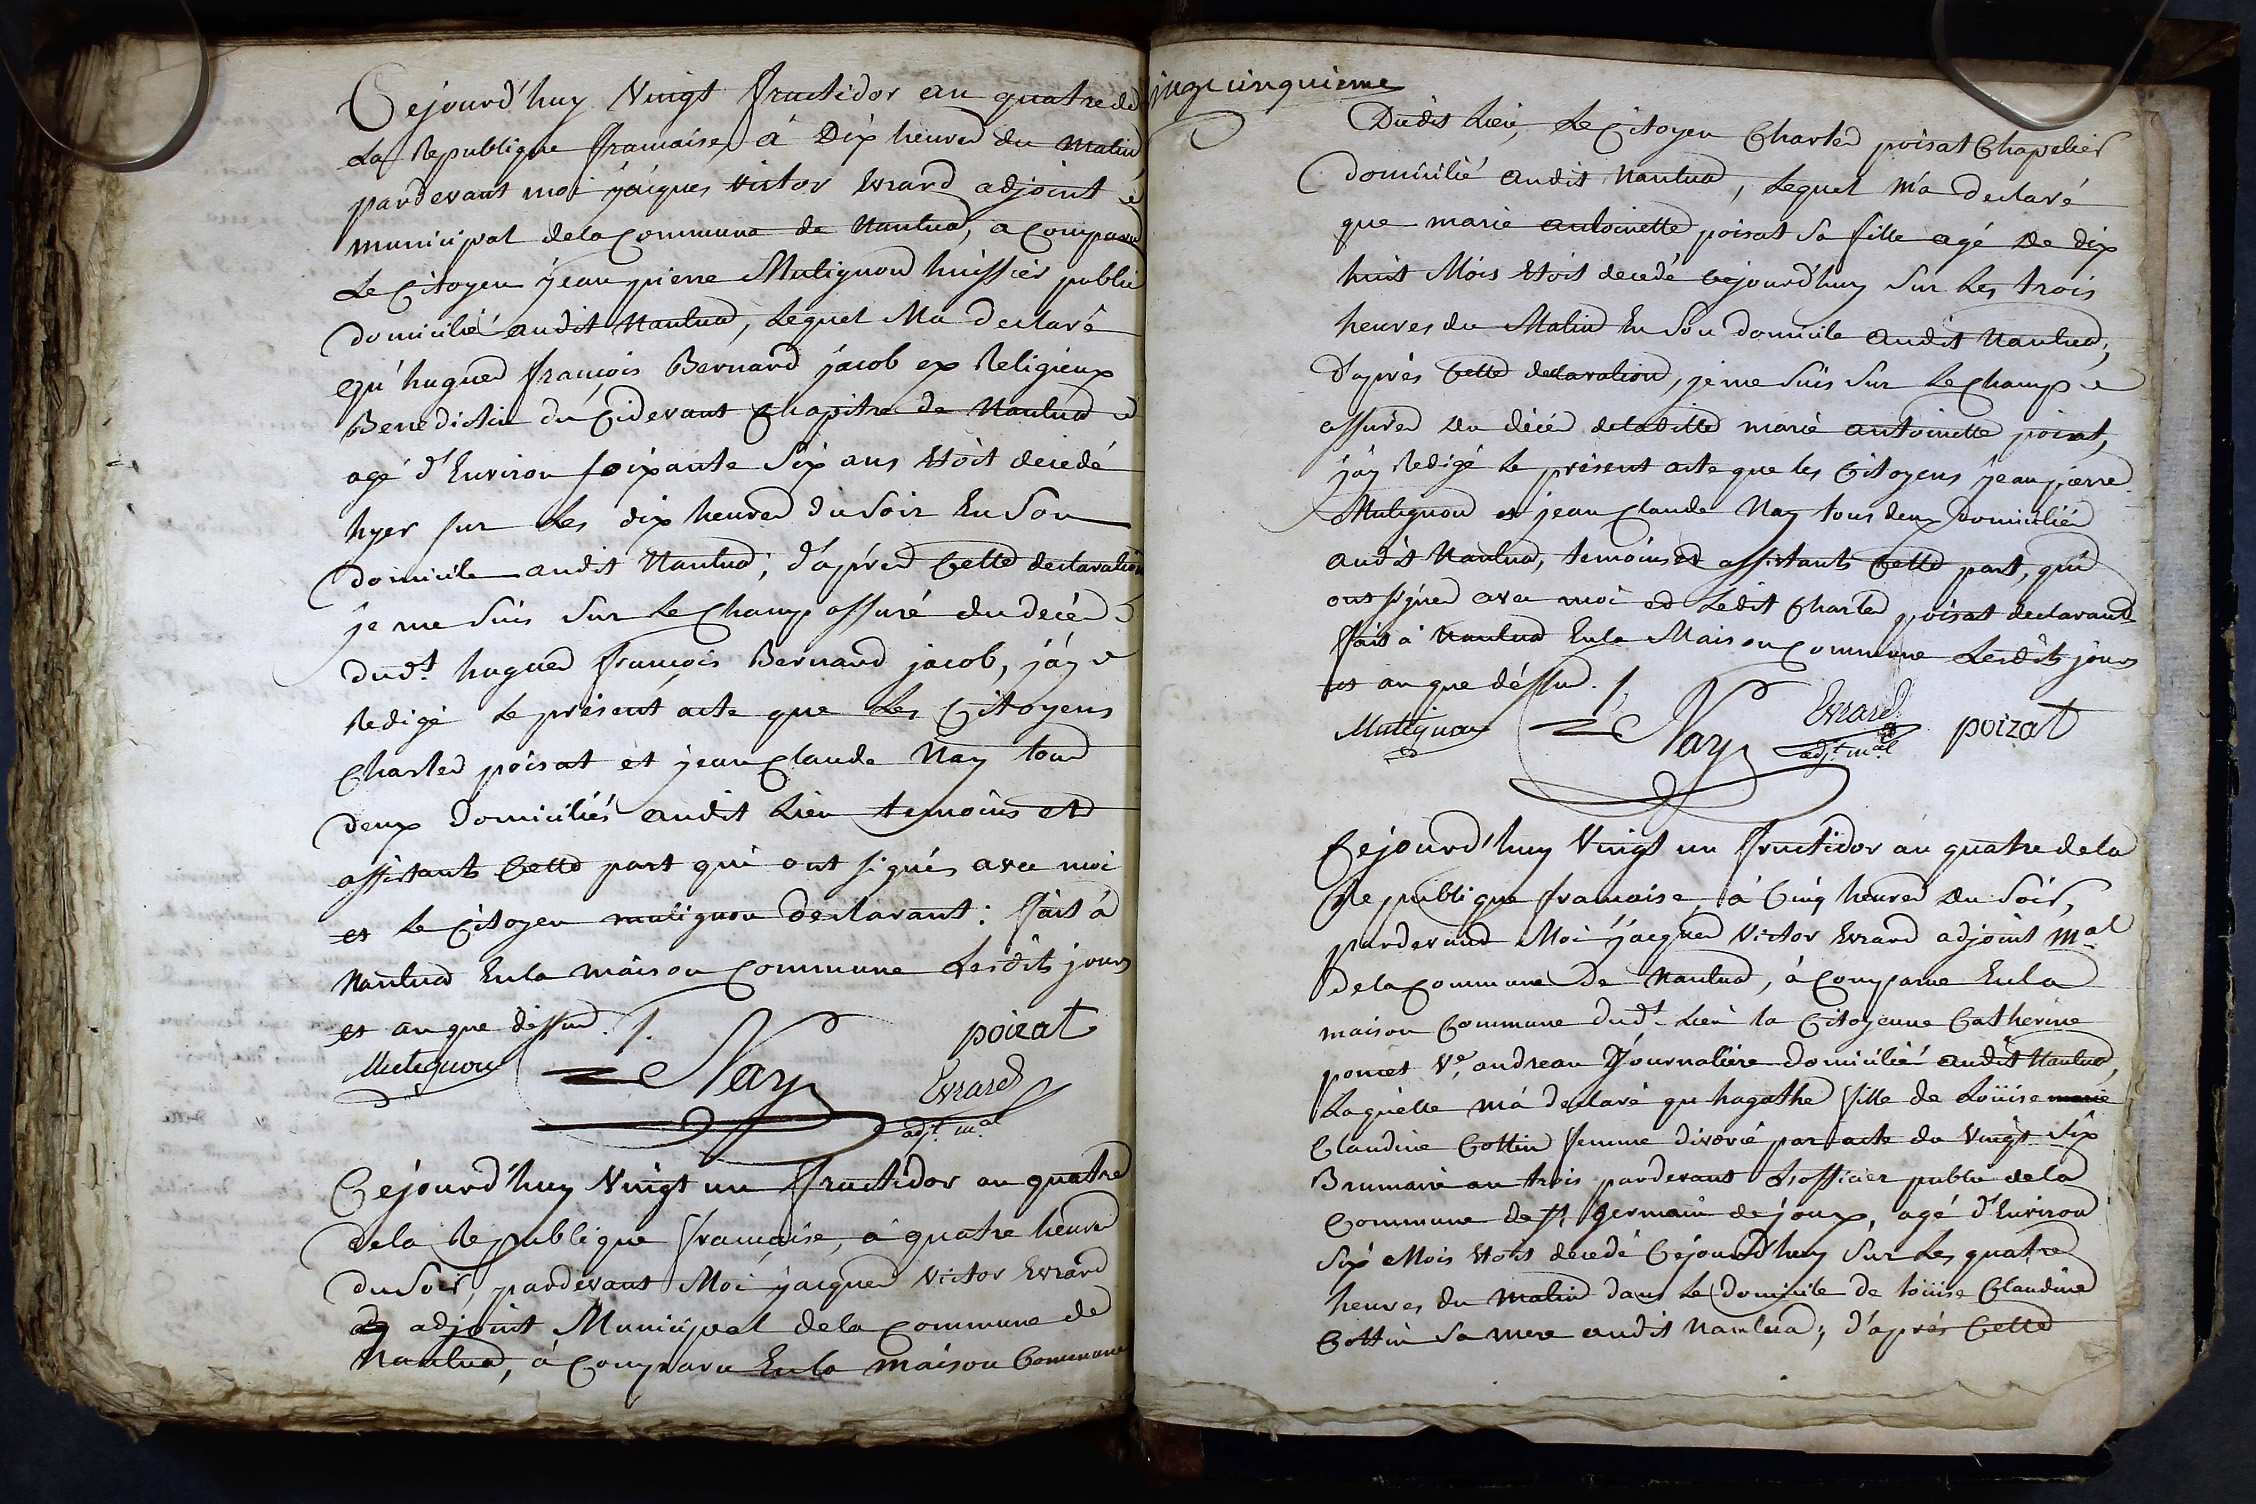 Cejourd'huy Vingt fructidor an quatre de
La Republique francaise, a Dix heures du matin
pardevant moi jacques victor Evrard adjoint
municipal dela Commune de Nantua, a Comparu
Le Citoyen jean pierre Mutignon huissier public
domicilié audit Nantua, Lequel Ma declaré
qu'hugues françois Bernard jacob ex Religieux
Benedictin du Cidevant Chapitre de Nantua
agé d'Environ soixante Six ans Etoit decedé
hyer sur Les dix heures du soir En Son
domicile audit Nantua; d'après Cette declaration
je me suis Sur Le Champ assuré du decés
dud.t hugues françois Bernard jacob, j'ay
Redigé Le présent acte que Les Citoyens
Charles poisat et jean Claude Nay tous
deux domiciliés audit Lieu temoins et
assistants Cette part qui ont signés avec moi
et Le Citoyen mutignon declarant: fait à
Nantua En la maison Commune Lesdits jours
et an que dessus.
Mutignon Nay poizat
Evrard
adj.t m.al
Cejourd'huy Vingt un fructidor an quatre
dela Republique francaise, à quatre heures
du Soir, pardevant Moi jacques Victor Evrard
adjoint Municipal dela Commune de
Nantua, à Comparu En la maison Commune
vingt cinquieme
Dudit Lieu, Le Citoyen Charles poisat Chapelier
domicilié audit Nantua, Lequel m'a declaré
que marie antoinette poisat Sa fille agé de dix
huit Mois Etoit decedé Cejourd'huy Sur Les trois
heures du Matin En Son domicile audit Nantua;
d'après Cette declaration, je me suis Sur Le Champ
assurer du décés deladitte marie antoinette poisat,
j'ay Redigé le présent acte que les Citoyens jean pierre
Mutignon et jean Claude Nay tous deux domiciliés
audit Nantua, temoins et assistants Cette part, qui
ont signes avec moi et Ledit Charles poisat declarant
fait à Nantua En la Maison Commune Lesdits jours
et an que dessus.
Mutignon Nay Evrard poizat
adj.t m.al
Cejourd'huy Vingt un fructidor an quatre dela
Republique francaise, à Cinq heures du Soir,
pardevant Moi jacques Victor Evrard adjoint m.al
dela Commune de Nantua, à Comparue En la
maison Commune dud.t Lieu la Citoyenne Catherine
poncet V.e andreau journalière domicilié audit Nantua,
Laquelle m'à declaré qu'hagathe fille de Loüise marie
Claudine Cottin femme divorcé par acte du Vingt Six
Brumaire an trois pardevant L'officier public dela
Commune de s.t germain de joux, agé d'Environ
Six Mois Etoit decedé Cejourd'huy Sur Les quatre
heures du matin dans Le domicile de loüise Claudine
Cottin Sa mere audit Nantua; d'après Cette